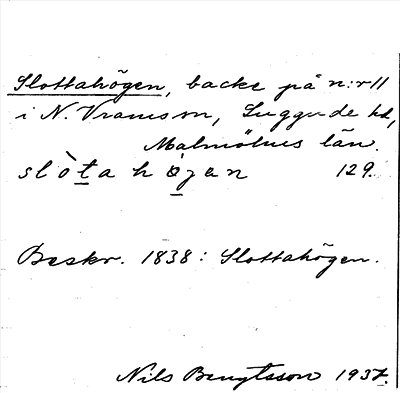 Slottahögen, backe på n:r 11
i N. Vramsn, Luggude hd,
Malmöhus län.
slòta högan 129.
Beskr. 1838: Slottahögen.
Nils Bengtsson 1937.